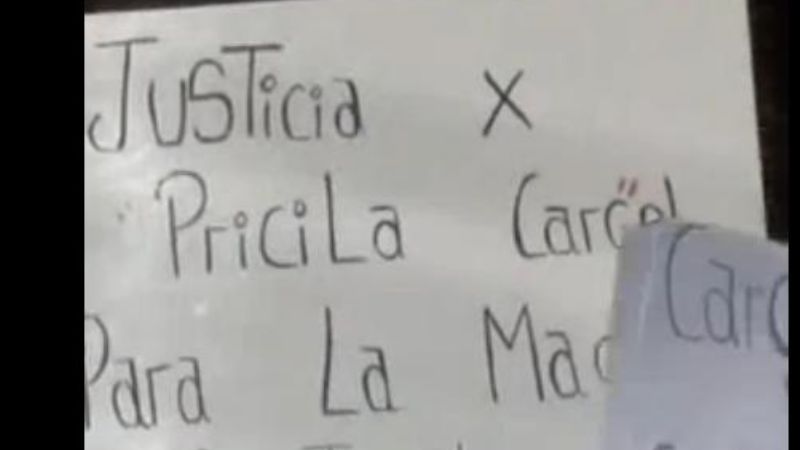 JUSTicia x
PriciLa Carcel
Para La
Carc